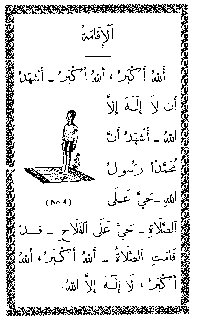 اَلْإِقَامَةُ
اَللهُ أَكْبَرُ ، اَللهُ أَكْبَرُ ـ أَشْهَدُ
أَن لَا إِلَهَ إِلاَّ
اللهُ ـ أَشْهَدُ أَنَّ
مُحَمَّدًا رَسُولُ
اللهِ ـ حَيَّ عَلَى
(No 4)
الصَّلَاةِ ـ حَيَّ عَلَى الْفَلَاحِ ـ قَدْ
قَامَتِ الصَّلَاةُ ـ اَللهُ أَكْبَرُ ، اَللهُ
أَكْبَرُ ، لَا إِلَهَ إِلاَّ اللهُ